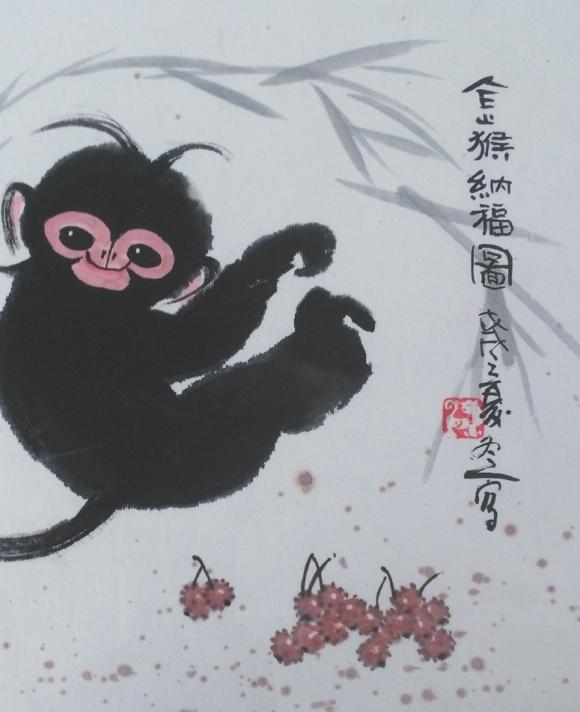 金猴納福圖 戊戌之夏 冬 寫